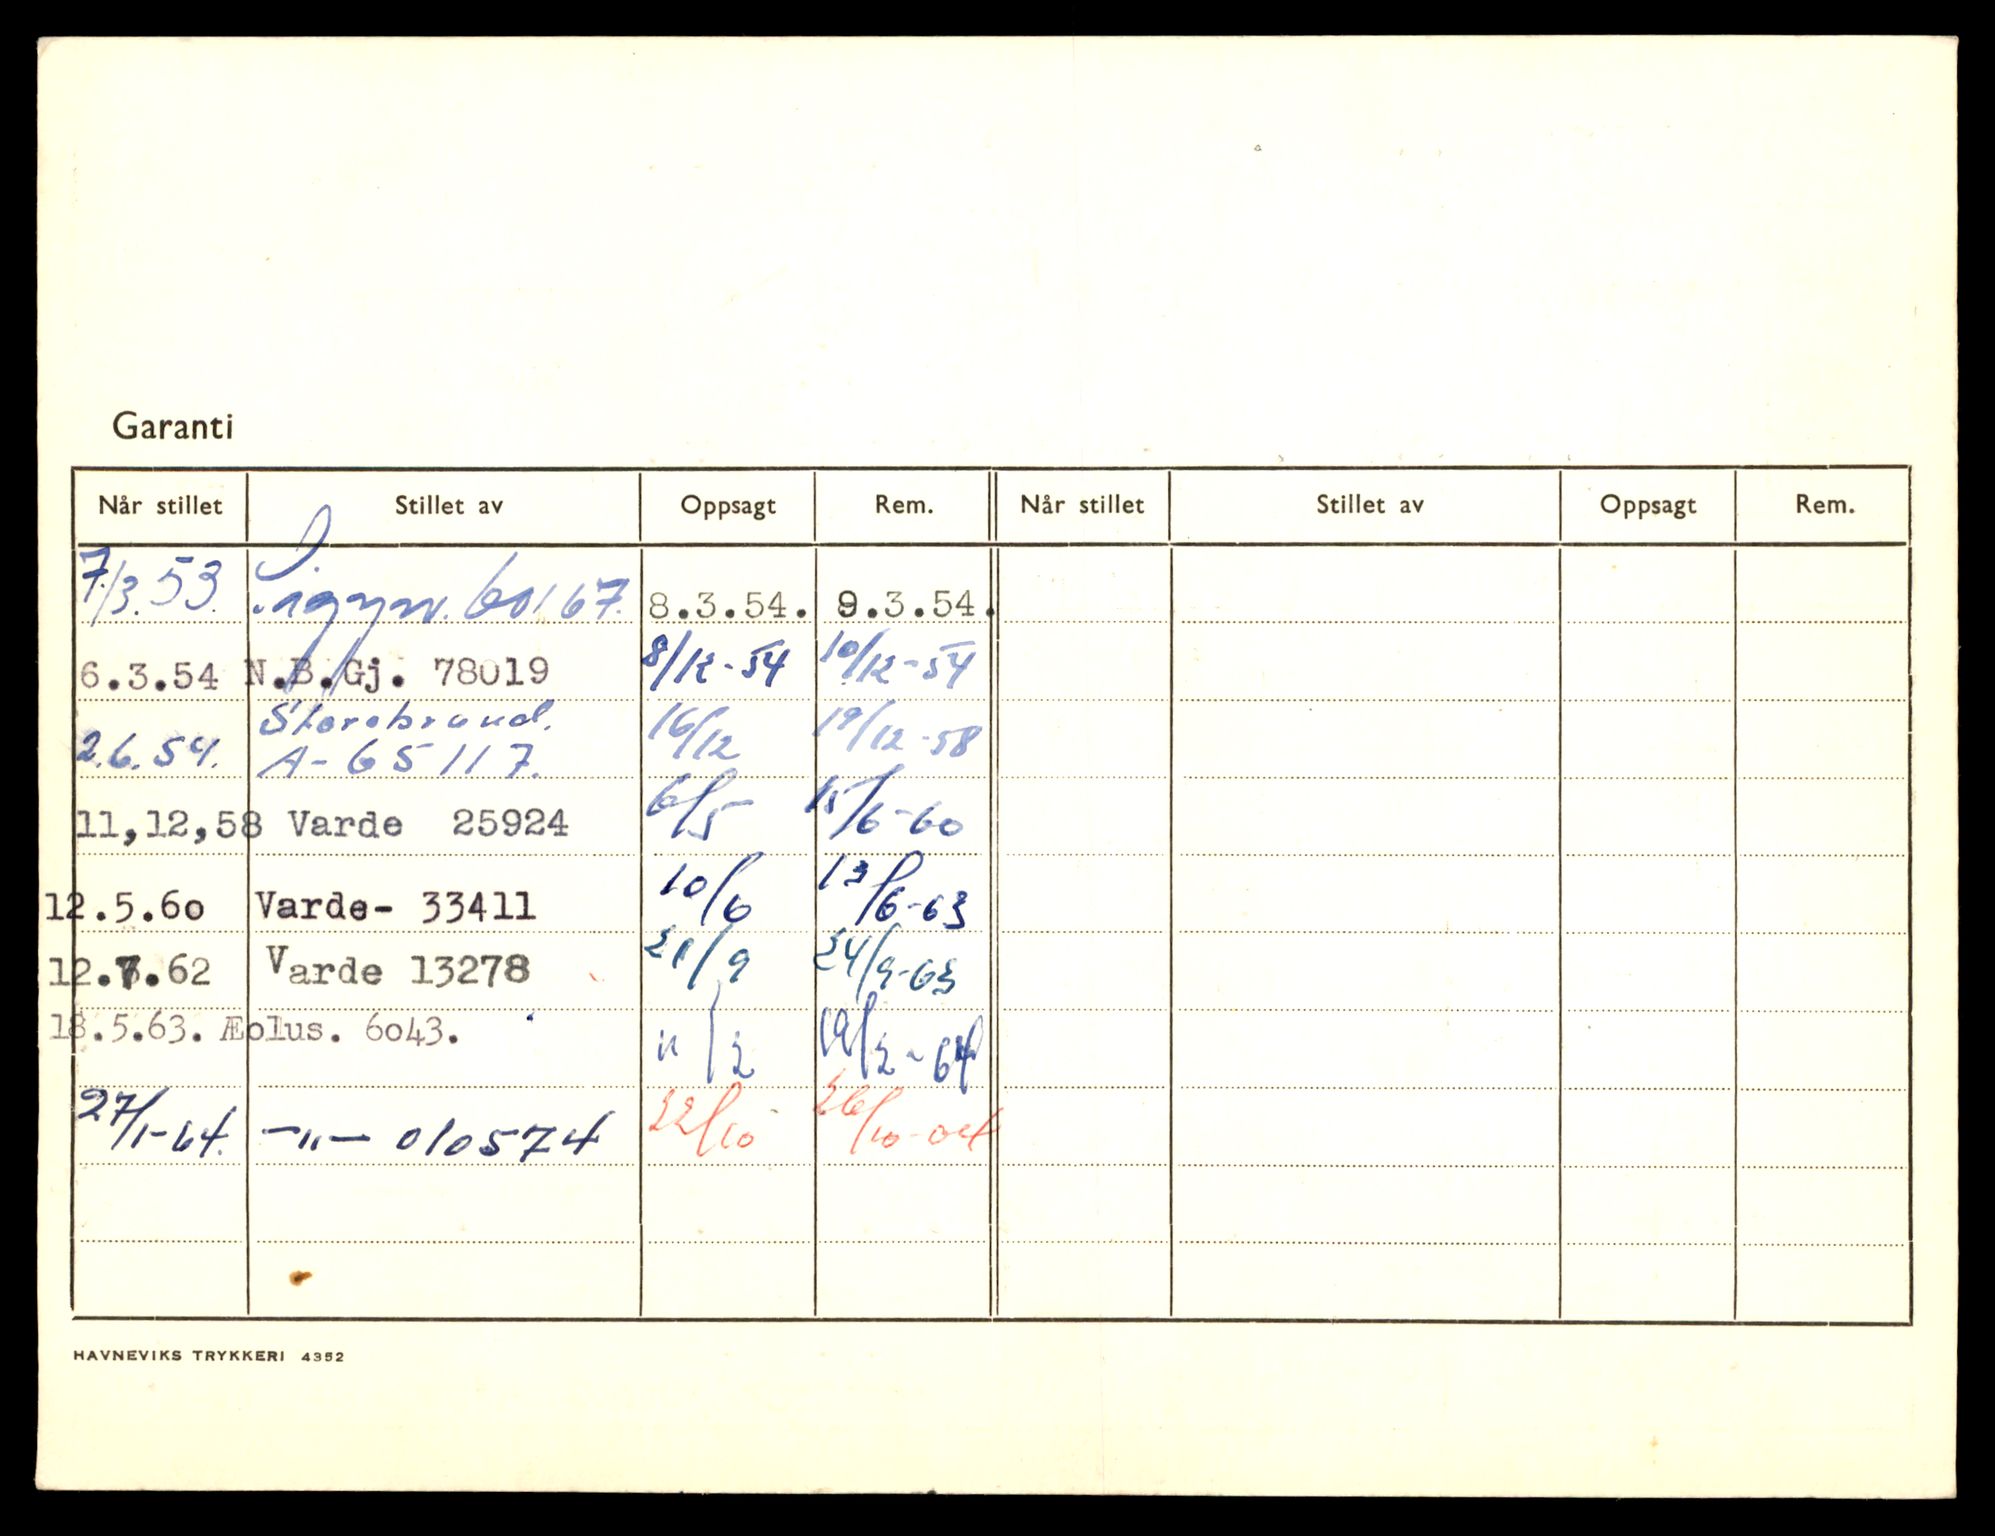 Garanti
Når stillet Stillet av Oppsagt Rem. Når stillet Stillet av Oppsagt Rem.
7/3.53. Sigyn. 60167. 8.3.54. 9.3.54.
6.3.54 N.B.Gj. 78019 8/12-54 10/12-54
Storebrand.
2.6.54. A-65117. 16/12 19/12-58
11,12,58 Varde 25924 6/5 15/6-60
12.5.60 Varde- 33411 10/6 13/6-63
12.7.62 Varde 13278 21/9 24/9-63
18.5.63. Æolus. 6043. 11/2 19/2-64
27/1-64. -"- 010574 22/10 26/10-64
HAVNEVIKS TRYKKERI 4352